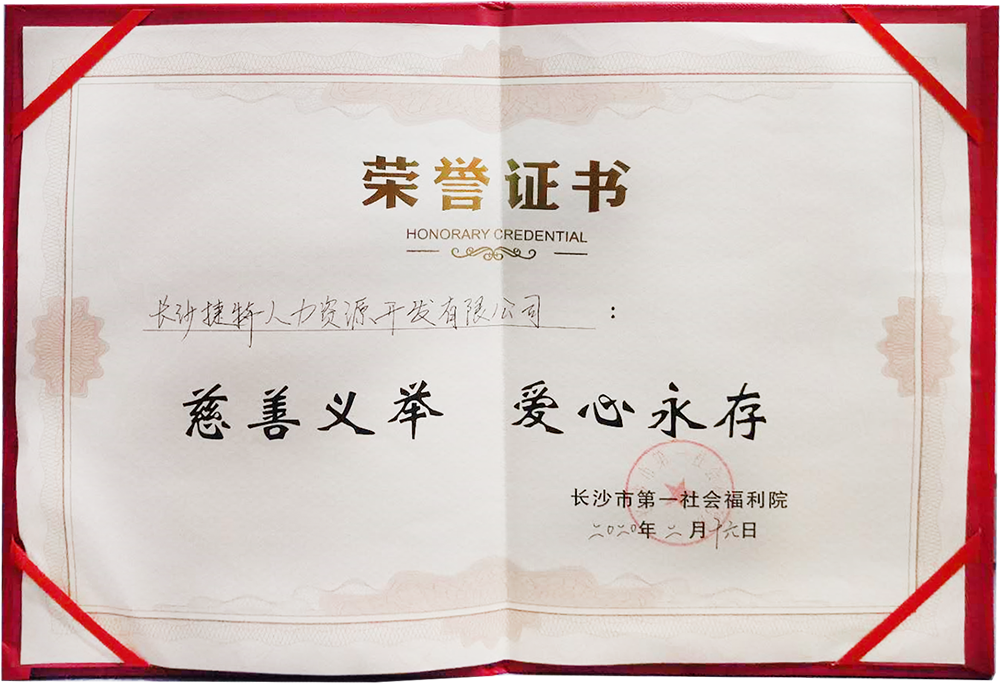 荣誉证书
HONORARY CREDENTIAL
长沙捷特人力资源开发有限公司：
慈善义举 爱心永存
长沙市第一社会福利院
二〇二〇年二月十六日